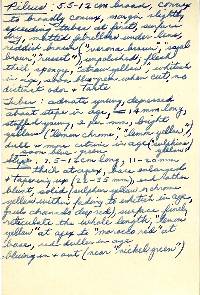 Pileus: 5.5-12 cm broad, convex
to broadly convex, margin slightly
exceeding tubes at first, surface
dry, matted fibrillose under lens,
reddish brown ("verona brown", "sayal
brown", "russet"), unpolished, flesh
thick, spongy, yellow whitish
in age, when cut, no
distinct odor + taste
Tubes: adnate young, depressed
about stipe in age, 14 mm long,
yellow young, per mm, bright
yellow ("lemon chrome", "lemon yellow"),
dull + more citrine in age ("sulphine
yellow")
Stipe: 7.5-12 cm long, 11-20 mm
thick at apex, base enlarged
+ tapering up (25-35 mm), and often
blunt, solid (sulphur yellow or chrome
yellow within fading to whitish in age,
surface finely
reticulate the whole length, "lemon
yellow" at apex to at
base, and duller in age
blueing in + out (near "nickel green")